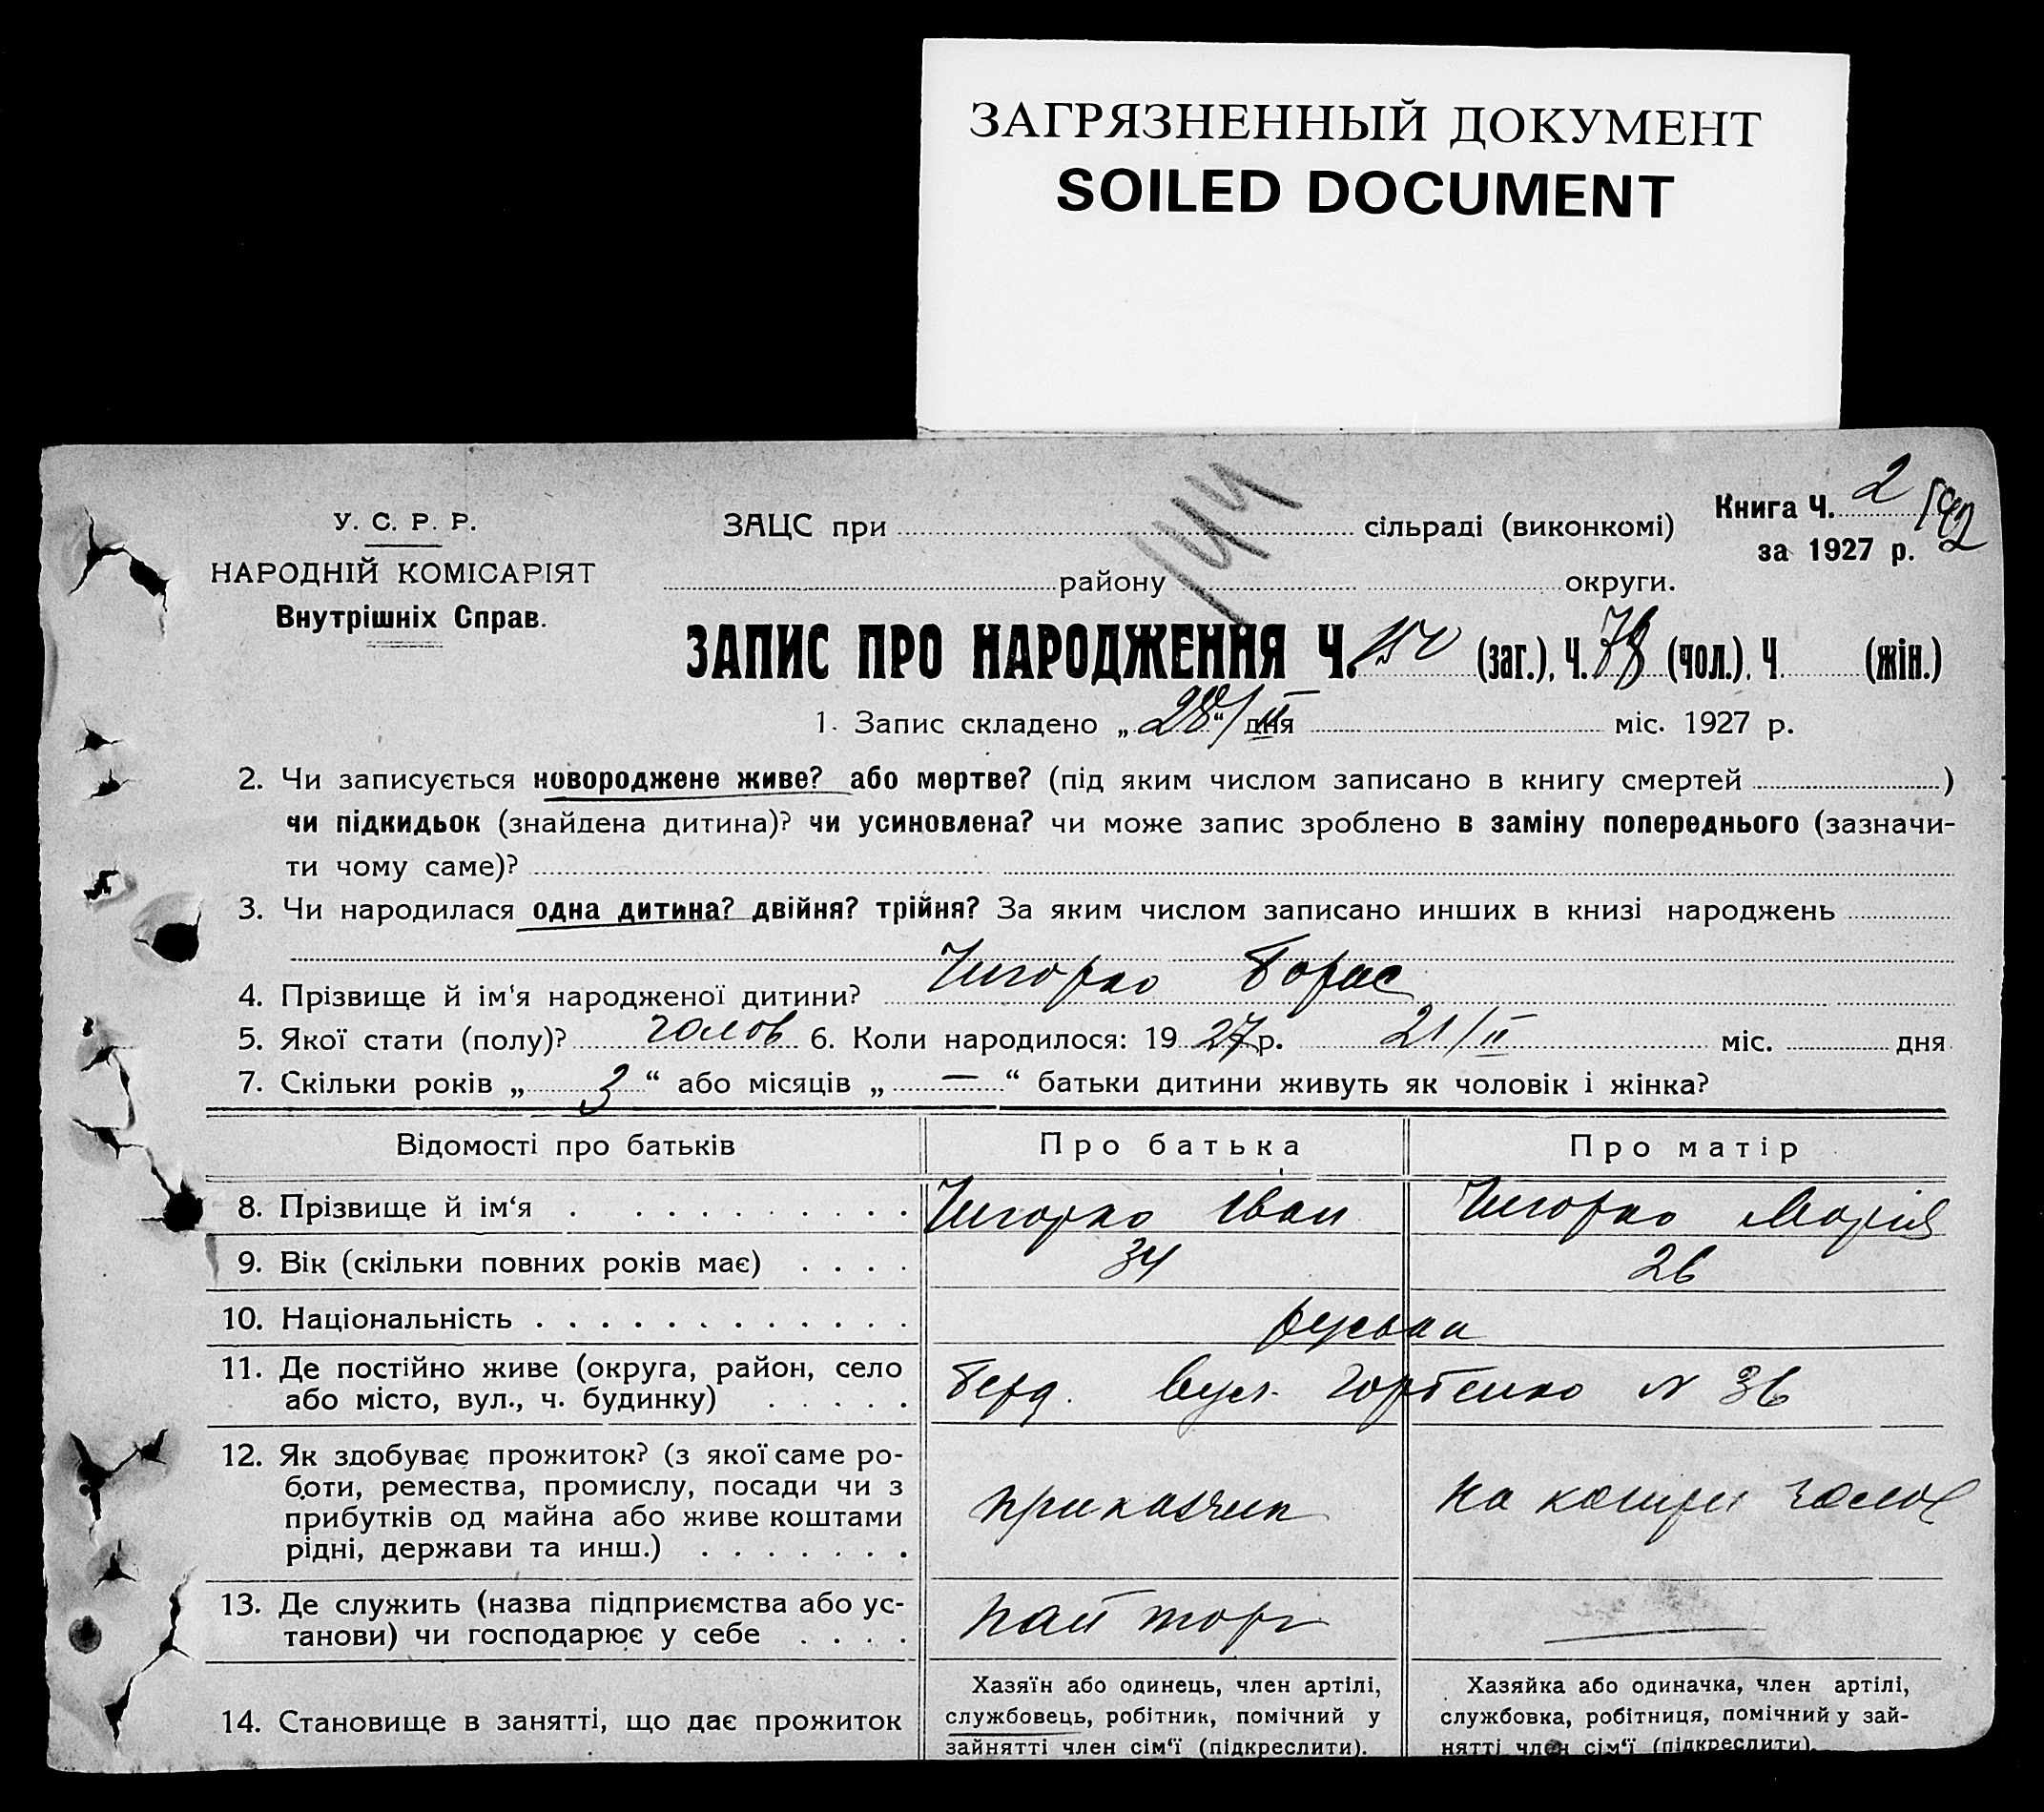 ЗАГРЯЗНЕННЫЙ ДОКУМЕНТ
SOILED DOCUMENT
Книга Ч. 2
142
за 1927 р.
У. С. Р. Р.
НАРОДНІЙ КОМІСАРІЯТ
Внутрішніх Справ.
144
ЗАЦС при сільраді (виконкомі)
району округи.
ЗАПИС ПРО НАРОДЖЕННЯ Ч. 150 (заг.), Ч. 78 (чол.), Ч. (жін.)
1. Запис складено „28/II“ дня міс. 1927 р.
2. Чи записується новороджене живе? або мертве? (під яким числом записано в книгу смертей )
чи підкидьок (знайдена дитина)? чи усиновлена? чи може запис зроблено в заміну попереднього (зазначи-
ти чому саме)?
3. Чи народилася одна дитина? двійня? трійня? За яким числом записано инших в книзі народжень
4. Прізвище й ім'я народженої дитини? Борис
5. Якої стати (полу)? чолов 6. Коли народилося: 1927 р. 21/II міс. дня
7. Скільки років „ 3 “ або місяців „ — “ батьки дитини живуть як чоловік і жінка?
Відомості про батьків Про батька Про матір
8. Прізвище й ім‘я Іван Марія
9. Вік (скільки повних років має) 34 26
10. Національність руська
11. Де постійно живе (округа, район, село
або місто, вул., ч. будинку)
Берд. вул. Горбенко N 36
12. Як здобуває прожиток? (з якої саме ро-
боти, ремества, промислу, посади чи з
прибутків од майна або живе коштами
рідні, держави та инш.)
приказчик на кошти чолов
13. Де служить (назва підприємства або ус-
танови) чи господарює у себе
Пай торг —
14. Становище в занятті, що дає прожиток
Хазяїн або одинець, член артілі,
службовець, робітник, помічний у
зайнятті член сім‘ї (підкреслити).
Хазяйка або одиначка, член артілі,
службовка, робітниця, помічний у зай-
нятті член сім‘ї (підкреслити).